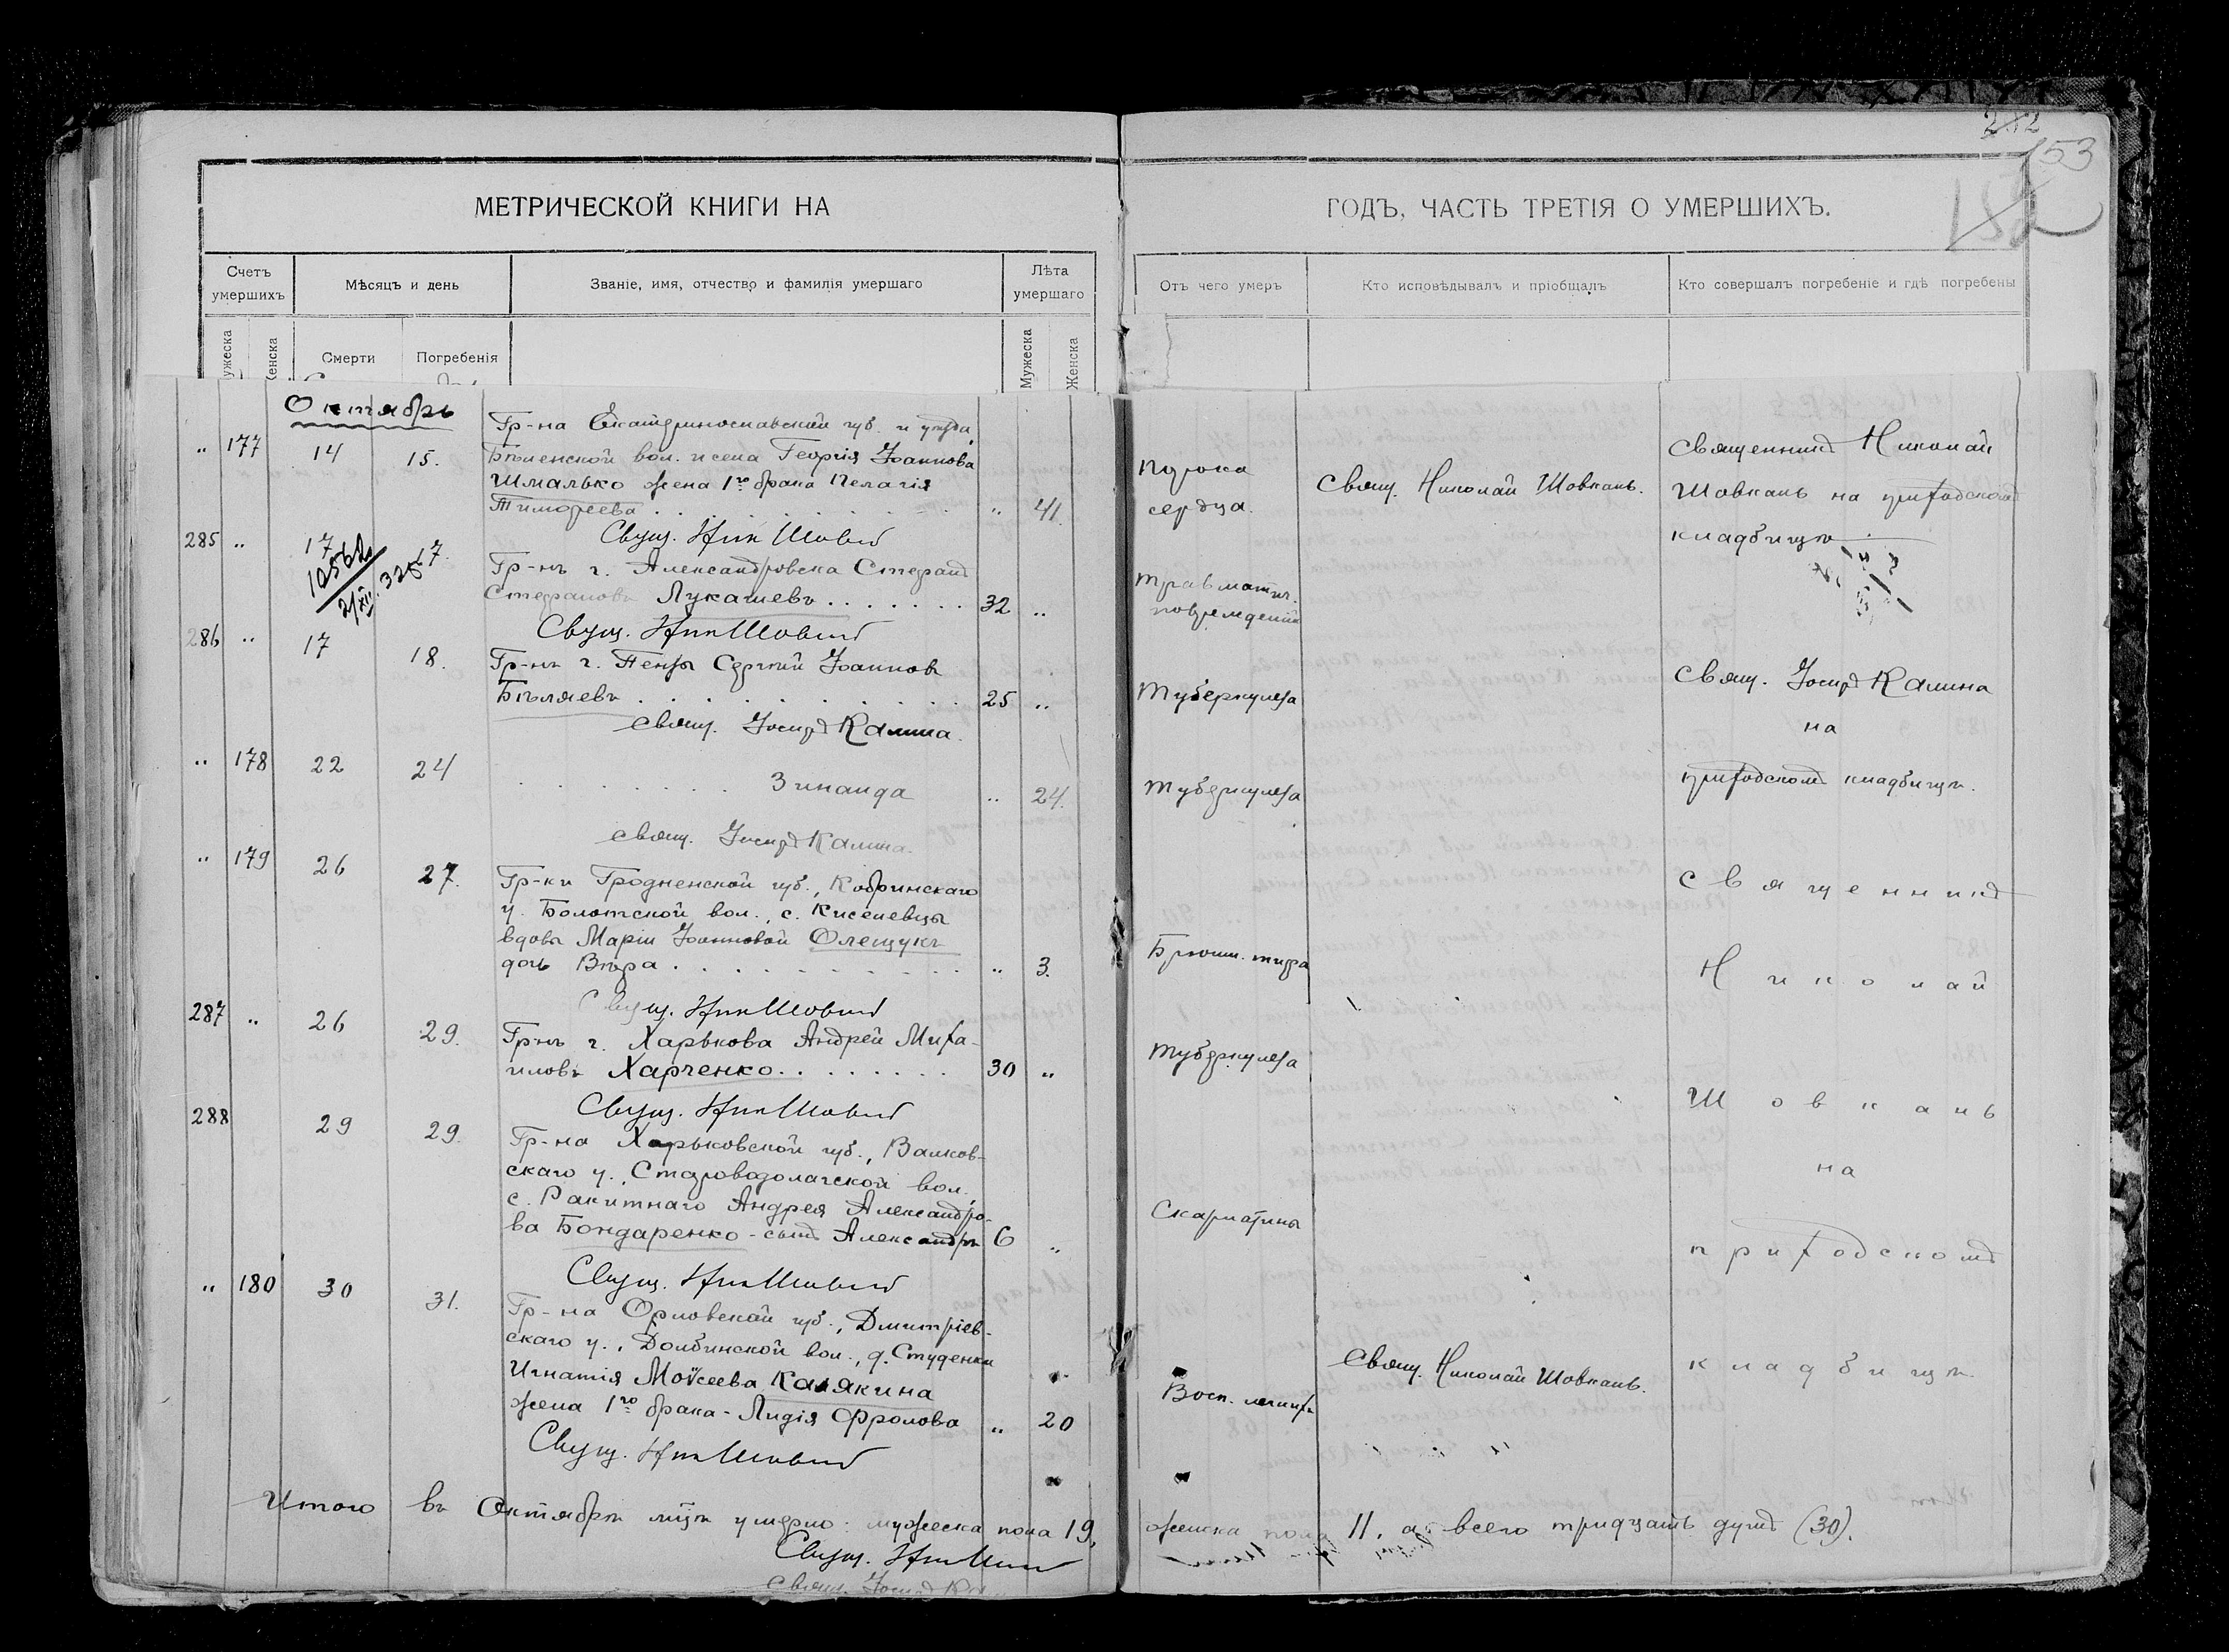 212
153
182
МЕТРИЧЕСКОЙ КНИГИ НА
ГОДЪ, ЧАСТЬ ТРЕТІЯ О УМЕРШИХЪ.
Счетъ умершихъ
Мѣсяцъ и день
Званіе, имя, отчество и фамилія умершаго
Лѣта умершаго
Отъ чего умеръ
Кто исповѣдывалъ и пріобщалъ
Кто совершалъ погребеніе и гдѣ погребены
ужеска
енска
Смерти
Погребенія
Мужеска
Женска
Октябрь
„ 177 14 15.
Гр-на Екатеринославской губ. и уѣзда,
Бѣленской вол. и села Георгія Іоаннова
Шмалько жена 1го брака Пелагія
Тимофеева . . . . . . „ 41.
Порока
сердца.
Свящ. Николай Шовкань.
Священникъ Николай
Шовкань на приходскомъ
кладбищѣ
Свящ. Ник Шовкань
285 „ 17 17.
12562
2/XII 32
Гр-нъ г. Александровска Стефанъ
Стефановъ Лукашевъ . . . . . . . 32 „
Травматич.
поврежденій
Свящ. Ник Шовкань
286 „ 17 18.
Гр-нъ г. Пензы Сергій Іоанновъ
Бѣляевъ . . . . . . . . . 25 „
Туберкулеза
Свящ. Іосифъ Калина
на
приходскомъ кладбищѣ.
Свящ. Іосифъ Калина.
„ 178 22 24
. . . . . . . . Зинаида „ 24.
Туберкулеза
Свящ. Іосифъ Калина.
„ 179 26 27.
Гр-ки Гродненской губ., Кобринскаго
у. Болотской вол., с. Киселевцы
вдовы Маріи Іоанновой Олещукъ
дочь Вѣра . . . . . . . . . . „ 3.
Брюшн. тифа
Священникъ
Николай
Шовкань
на
приходскомъ
кладбищѣ.
Свящ. Ник Шовкань
287 „ 26 29.
Гр-нъ г. Харькова Андрей Миха-
иловъ Харченко. . . . . . . . 30 „
Туберкулеза
Свящ. Ник Шовкань
288 29 29
Гр-на Харьковской губ., Валков-
скаго у., Староводолагской вол.,
с. Ракитнаго Андрея Александро-
ва Бондаренко - сынъ Александръ 6 „
Скарлатины
Свящ. Ник Шовкань
„ 180 30 31.
Гр-на Орловской губ., Дмитріев-
скаго у., Долбинской вол., д. Студенки
Игнатія Моисеева Калякина
жена 1го брака - Лидія Фролова „ 20
Восп. легкихъ
Свящ. Николай Шовкань.
Свящ. Ник Шовкань
Итого въ Октябрѣ мцѣ умерло: мужеска пола 19, женска пола 11, а всего тридцать душъ (30).
Свящ. Ник Шовкань
Свящ. Іосифъ